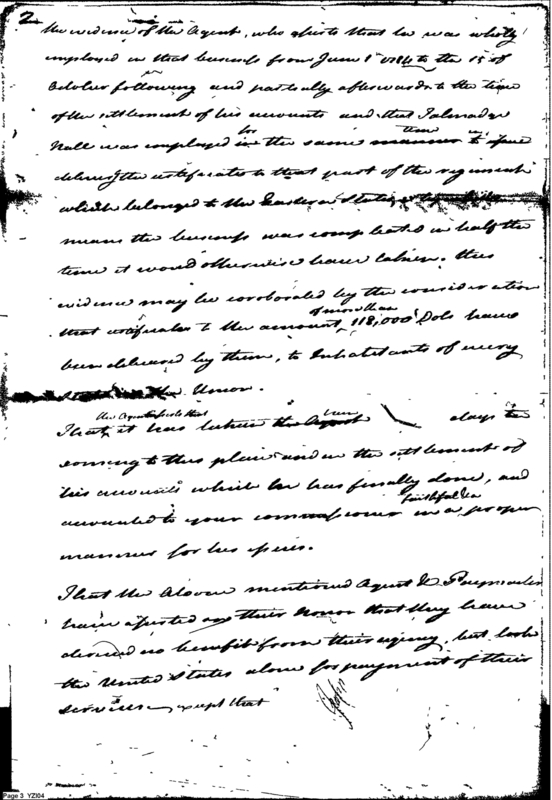 2
the evidence of the Agent, who asserts that he was wholly
employed in that business from June 1 1784 to the 15 of
October following and partially afterwards to the time
of the settlement of his accounts and that Talmadge
Hall was employed in the same manner to
for time
delivering the certificates to that part of the regiment
which belonged to the Eastern States
means the business was compleated in half the
time it would otherwise have taken. this
evidence may be corroborated by the consideration
of more than
that certificates to the amount 118,000 Dols have
been delivered by them, to Inhabitants of every
the Union.
the Agent that
That it has taken the Agent days
coming to this place and in the settlement of
his accounts which he has finally done, and
faithful
accounted to your commissioner in a proper
manner for his
That the Above mentioned Agent & Paymaster
have asserted on their honor that they have
derived no benefit from their agency, but look
the United States alone for payment of their
services except that
Page 3 YZI04